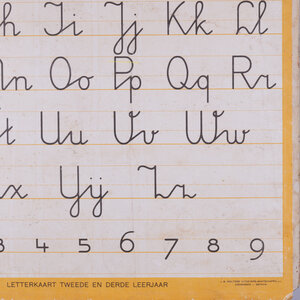 h Ii Jj Kk Ll
n Oo Pp Qq Rr
t Uu Vv Ww
x IJij Zz
3 4 5 6 7 8 9
LETTERKAART TWEEDE EN DERDE LEERJAAR